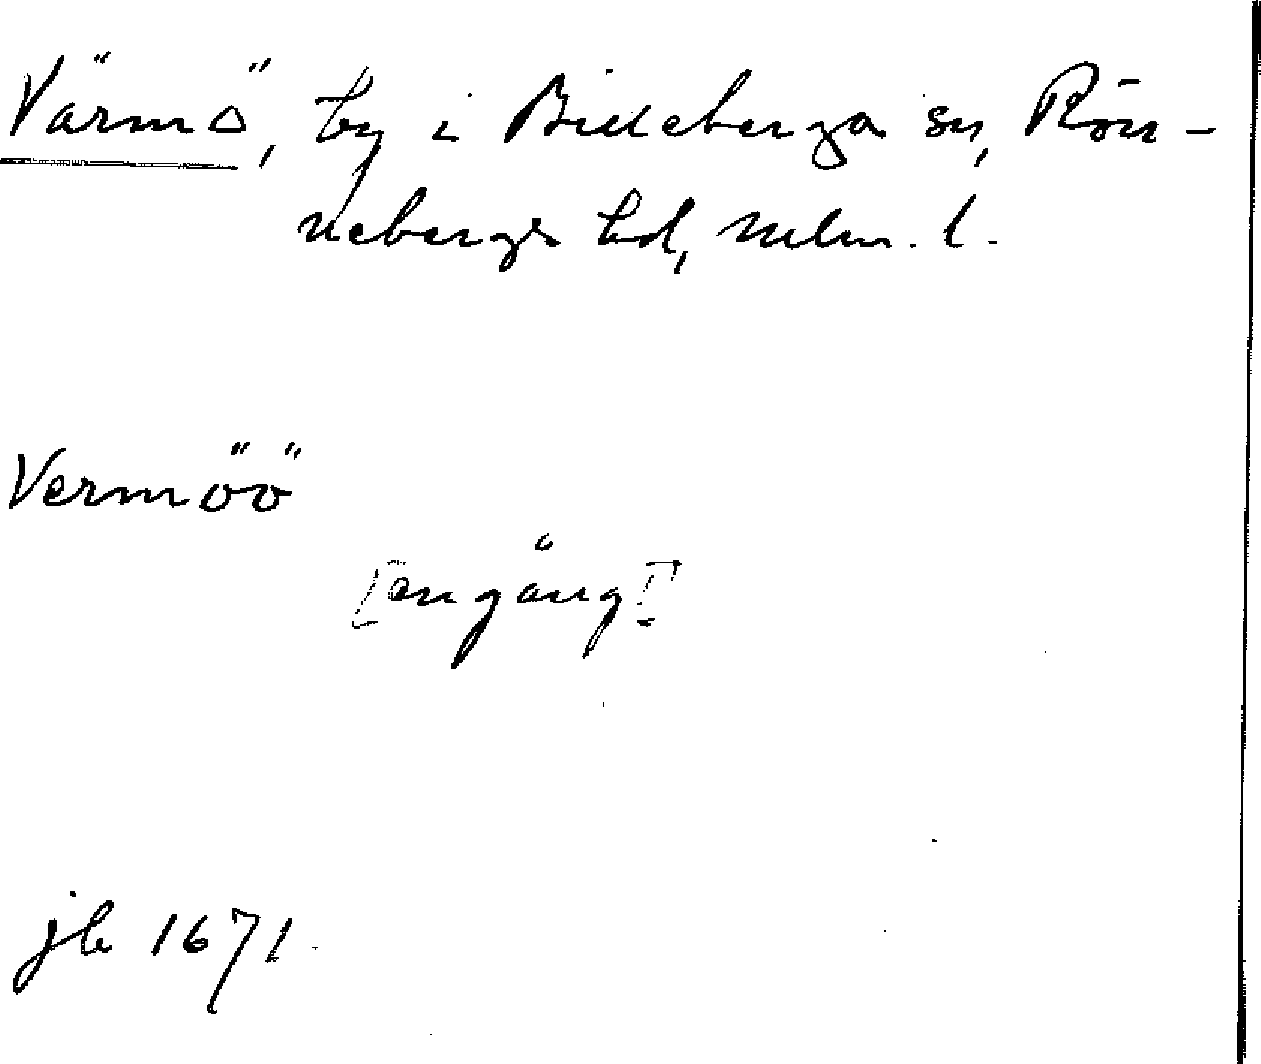 Värmö, by i Billeberga sn, Rön-
nebergs hd, Malm. l.
Vermöö
[en gång]
jb 1671